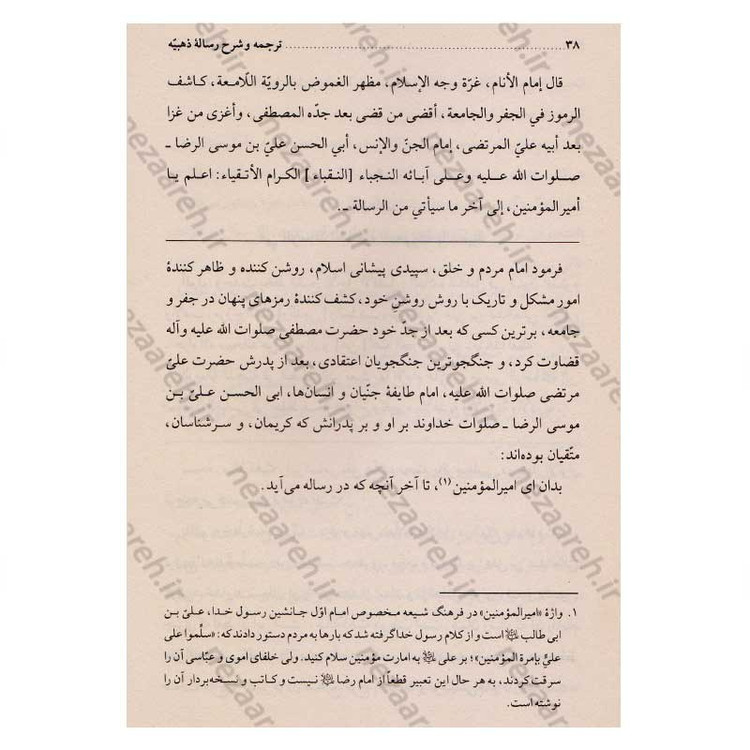 ۳۸ ........................................ ترجمه و شرح رسالهٔ ذهبیّه
قال إمام الأنام، غرّة وجه الإسلام، مظهر الغموض بالرویّة اللّامعة، کاشف
الرموز في الجفر والجامعة، أقضی من قضی بعد جدّه المصطفی، وأغزی من غزا
بعد أبیه عليّ المرتضی، إمام الجنّ والإنس، أبي الحسن عليّ بن موسی الرضا ـ
صلوات الله علیه وعلی آبائه النجباء [النقباء] الکرام الأتقیاء: اعلم یا
أمیرالمؤمنین، إلی آخر ما سیأتي من الرسالة ـ.
فرمود امام مردم و خلق، سپیدی پیشانی اسلام، روشن کننده و ظاهر کنندهٔ
امور مشکل و تاریک با روش روشن خود، کشف کنندهٔ رمزهای پنهان در جفر و
جامعه، برترین کسی که بعد از جدّ خود حضرت مصطفی صلوات الله علیه وآله
قضاوت کرد، و جنگجوترین جنگجویان اعتقادی، بعد از پدرش حضرت علیّ
مرتضی صلوات الله علیه، امام طایفهٔ جنّیان و انسان‌ها، ابی الحسن علیّ بن
موسی الرضا ـ صلوات خداوند بر او و بر پدرانش که کریمان، و سرشناسان،
متّقیان بوده‌اند:
بدان ای امیرالمؤمنین (۱)، تا آخر آنچه که در رساله می‌آید.
۱. واژهٔ «امیرالمؤمنین» در فرهنگ شیعه مخصوص امام اوّل جانشین رسول خدا، علیّ بن
ابی طالب ﷺ است و از کلام رسول خدا گرفته شد که بارها به مردم دستور دادند که: «سلّموا علی
عليٍّ بإمرة المؤمنین»؛ بر علی ﷺ به امارت مؤمنین سلام کنید. ولی خلفای اموی و عبّاسی آن را
سرقت کردند، به هر حال این تعبیر قطعاً از امام رضا ﷺ نیست و کاتب و نسخه‌بردار آن را
نوشته است.
nezaareh.ir